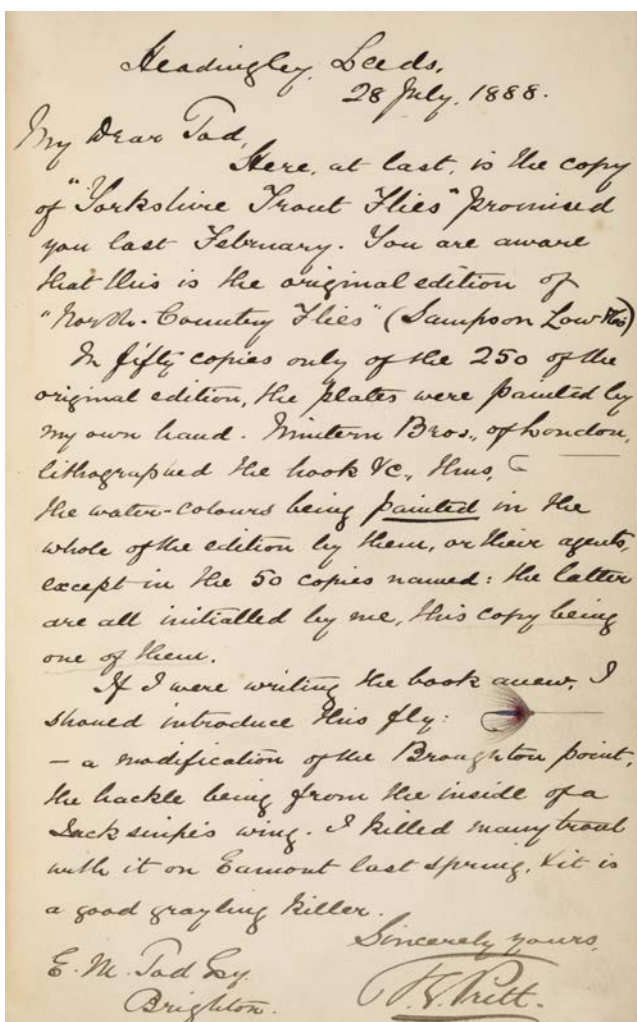 Headingley, Leeds,
28 July. 1888.
My Dear Tod,
Here, at last, is the copy
of "Yorkshire Trout Flies" promised
you last February. You are aware
that this is the original edition of
"North-Country Flies" (Sampson Low
In fifty copies only of the 250 of the
original edition, the plates were painted by
my own hand. Mintern Bros., of London,
lithographed the book &c., thus,
the water-colours being painted in the
whole of the edition by them, or their agents,
except in the 50 copies named: the latter
are all initialled by me, this copy being
one of them.
If I were writing the book anew, I
should introduce this fly:
- a modification of the Broughton point,
the hackle being from the inside of a
Jack snipe's wing. I killed many trout
with it on Eamont last spring, & it is
a good grayling killer.
Sincerely yours,
T. E. Pritt.
E. M. Tod Esq.
Brighton.